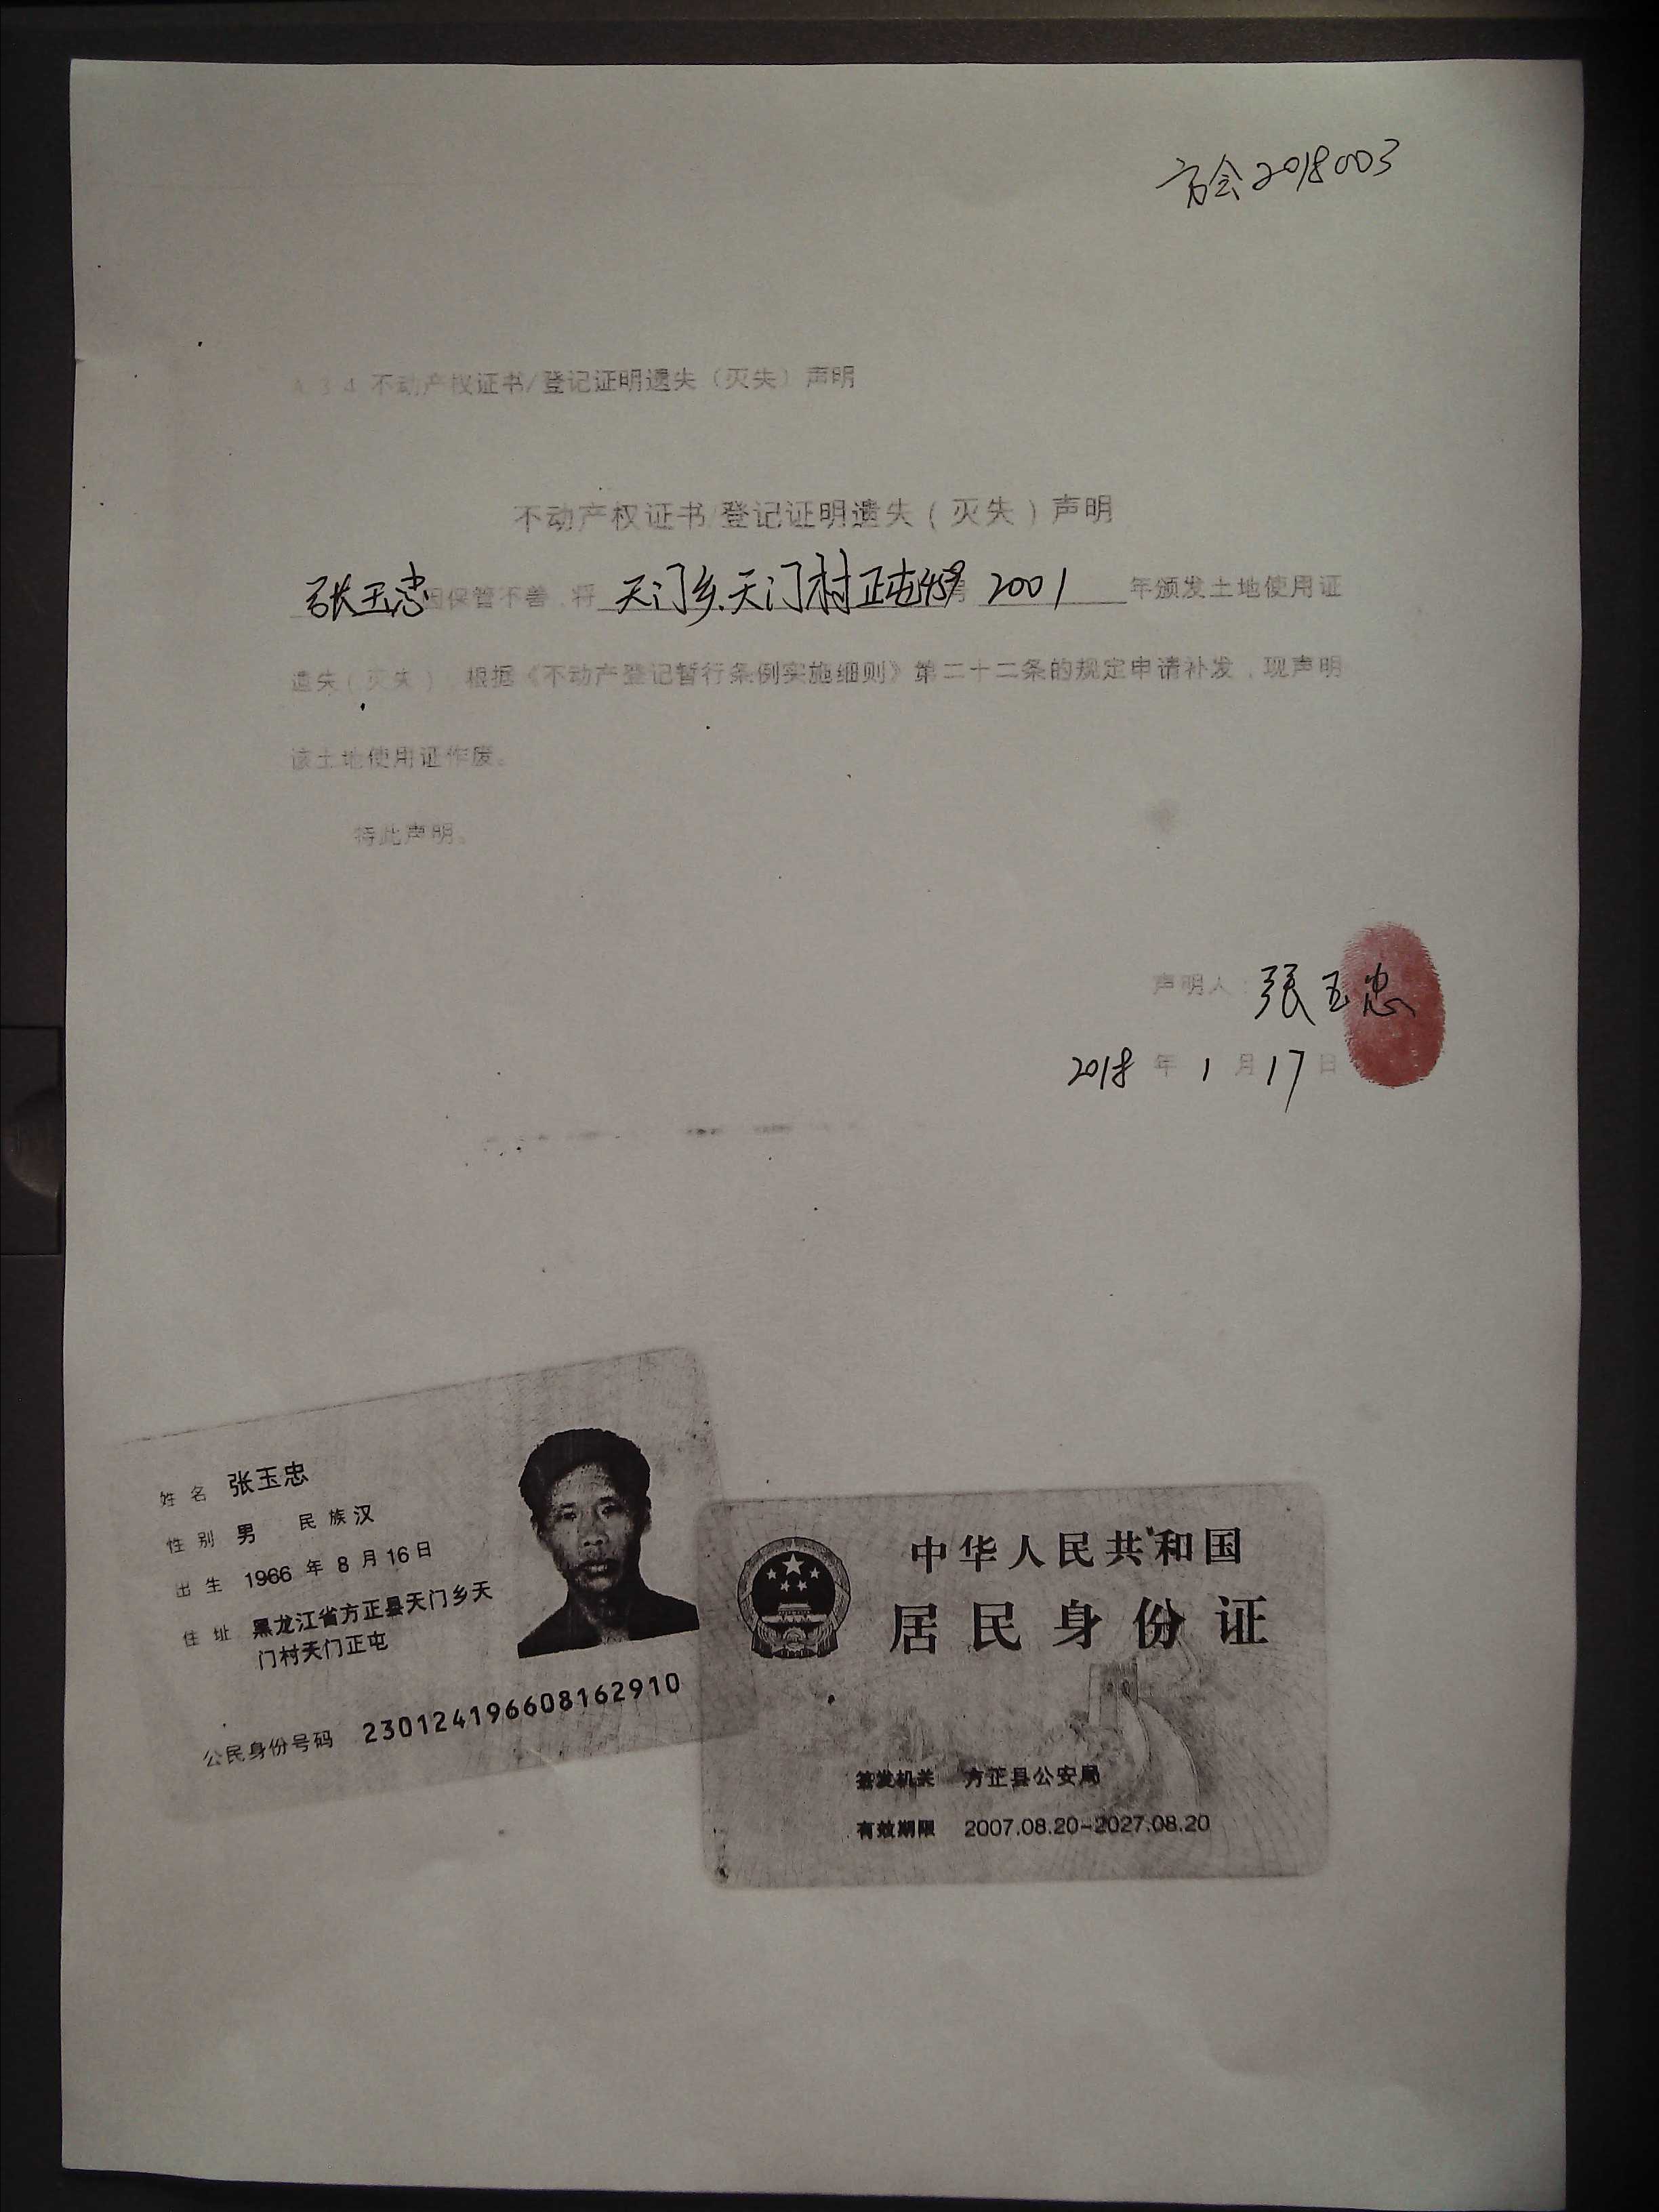 方会2018003
A.3.4 不动产权证书/登记证明遗失（灭失）声明
不动产权证书/登记证明遗失（灭失）声明
张玉忠因保管不善，将 天门乡.天门村正屯 2001 年颁发土地使用证
遗失（灭失），根据《不动产登记暂行条例实施细则》第二十二条的规定申请补发，现声明
该土地使用证作废。
特此声明。
声明人：张玉忠
2018 年 1 月 17 日
姓名 张玉忠
性别 男 民族 汉
出生 1966 年 8 月 16 日
住址 黑龙江省方正县天门乡天
门村天门正屯
公民身份号码 230124196608162910
中华人民共和国
居民身份证
签发机关 方正县公安局
有效期限 2007.08.20-2027.08.20